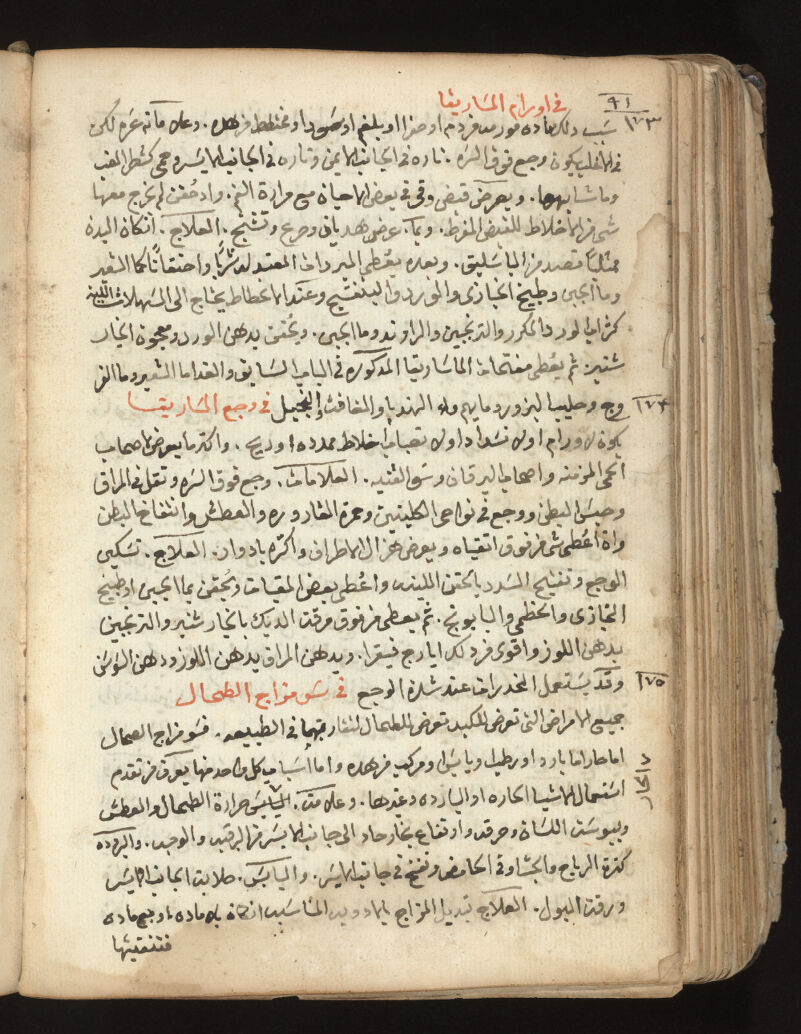 ٩١
في اورام الماساريقا
١٧٣
سبب ذلك ماده مورمه من دم او صفرا او بلغم او سودا او مختلط من هذه. وعلاماته عسره لكن
في الاغلب يكون وجع فوق السره. تاره في الجانب الايمن وتاره في الجانب الايسر وحمى كشطر الغب
وما شابهها. ويعرض قبض وقي في بعض الاحيان مع مرارة الفم. واذ حقن لم يخرج معها
شي من الاخلاط للقبض المفرط. وربما عرض هديان وجرع وتشنج. العلاج. ان كان البدن
ممتليًا فصد من الباسليق. وبعده يعطى المبردات المعتدله شربًا واحتقانًا كما الشعير
وما الجبن وطبيخ الخبازى والورد والبنفسج وعند الانحطاط يحتاج الى المسهلات اللينه
كشراب الورد المكرر والترنجبين والراوند وما الجبن. ويحقن بدهن الورد ومعجون الخيار
شنبر. ثم يعطى مفتحات الماساريقا المذكوره في الباب السابق والغدا ما الشعير وما الفر
وج وحليب البزورد ما الهندبا والغافت والنجيل في وجع الماساريقا
١٧٤
يكون لاورام او لانسداد او لانصباب اخلاط ممدده او ريح. واكثر ما يعرض لاصحاب
الحمى المزمنه واصحاب اليرقان وسو القنيه. العلامات. وجع فوق السره وثقل في المراق
وحبس البطن ووجع في نواحي الكليتين وحمرة القاروره والعطش وانتفاخ البطن
واذ اعطي شي من فوق اتقياه ويعرض هزال الاطراف واكثره بادوار. العلاج. تسكين
الوجع وتفتيح السدد بالحقن اللينه واعطى بعض المقيات ويحقن بما الجبن او طبيخ
الخبازى والخطمي والبابونج. ثم يعطى من فوق مرقت الديك بالخيار شنبر والترنجبين
بدهن اللوز واقوى من ذلك ايارج فيقرا. ويدهن المراق بدهن اللوز ودهن السوسن
وقد يستعمل المخدرات عند شدة الوجع في سو مزاج الطحال
١٧٥
جميع الامراض التي تعرض للكبد تعرض للطحال لتقاربهما في الطبيعه. فسو مزاج الطحال
اما حار اما بارد او رطب او يابس او مركب من هذه واما اسباب كل واحد منها يعرف من تقدم
استعمال الاشيا الحاره او البارده وغيرها. وعلامت اليابس حرارة الطحال والعطش
ويبوست اللسان وحرقه وارتفاع بخار حاد الى جانب الايسر من الرقبه والوجه. والبروده
كثرة الرياح والجشا وقي الحامض ونفخ في جانب الايسر. واليابس. صلابت الجانب الايسر
ورقت البول. العلاج تبديل المزاج بالادويه المناسبه ان كان بلا ماده او مع ماده
فتنقيتها